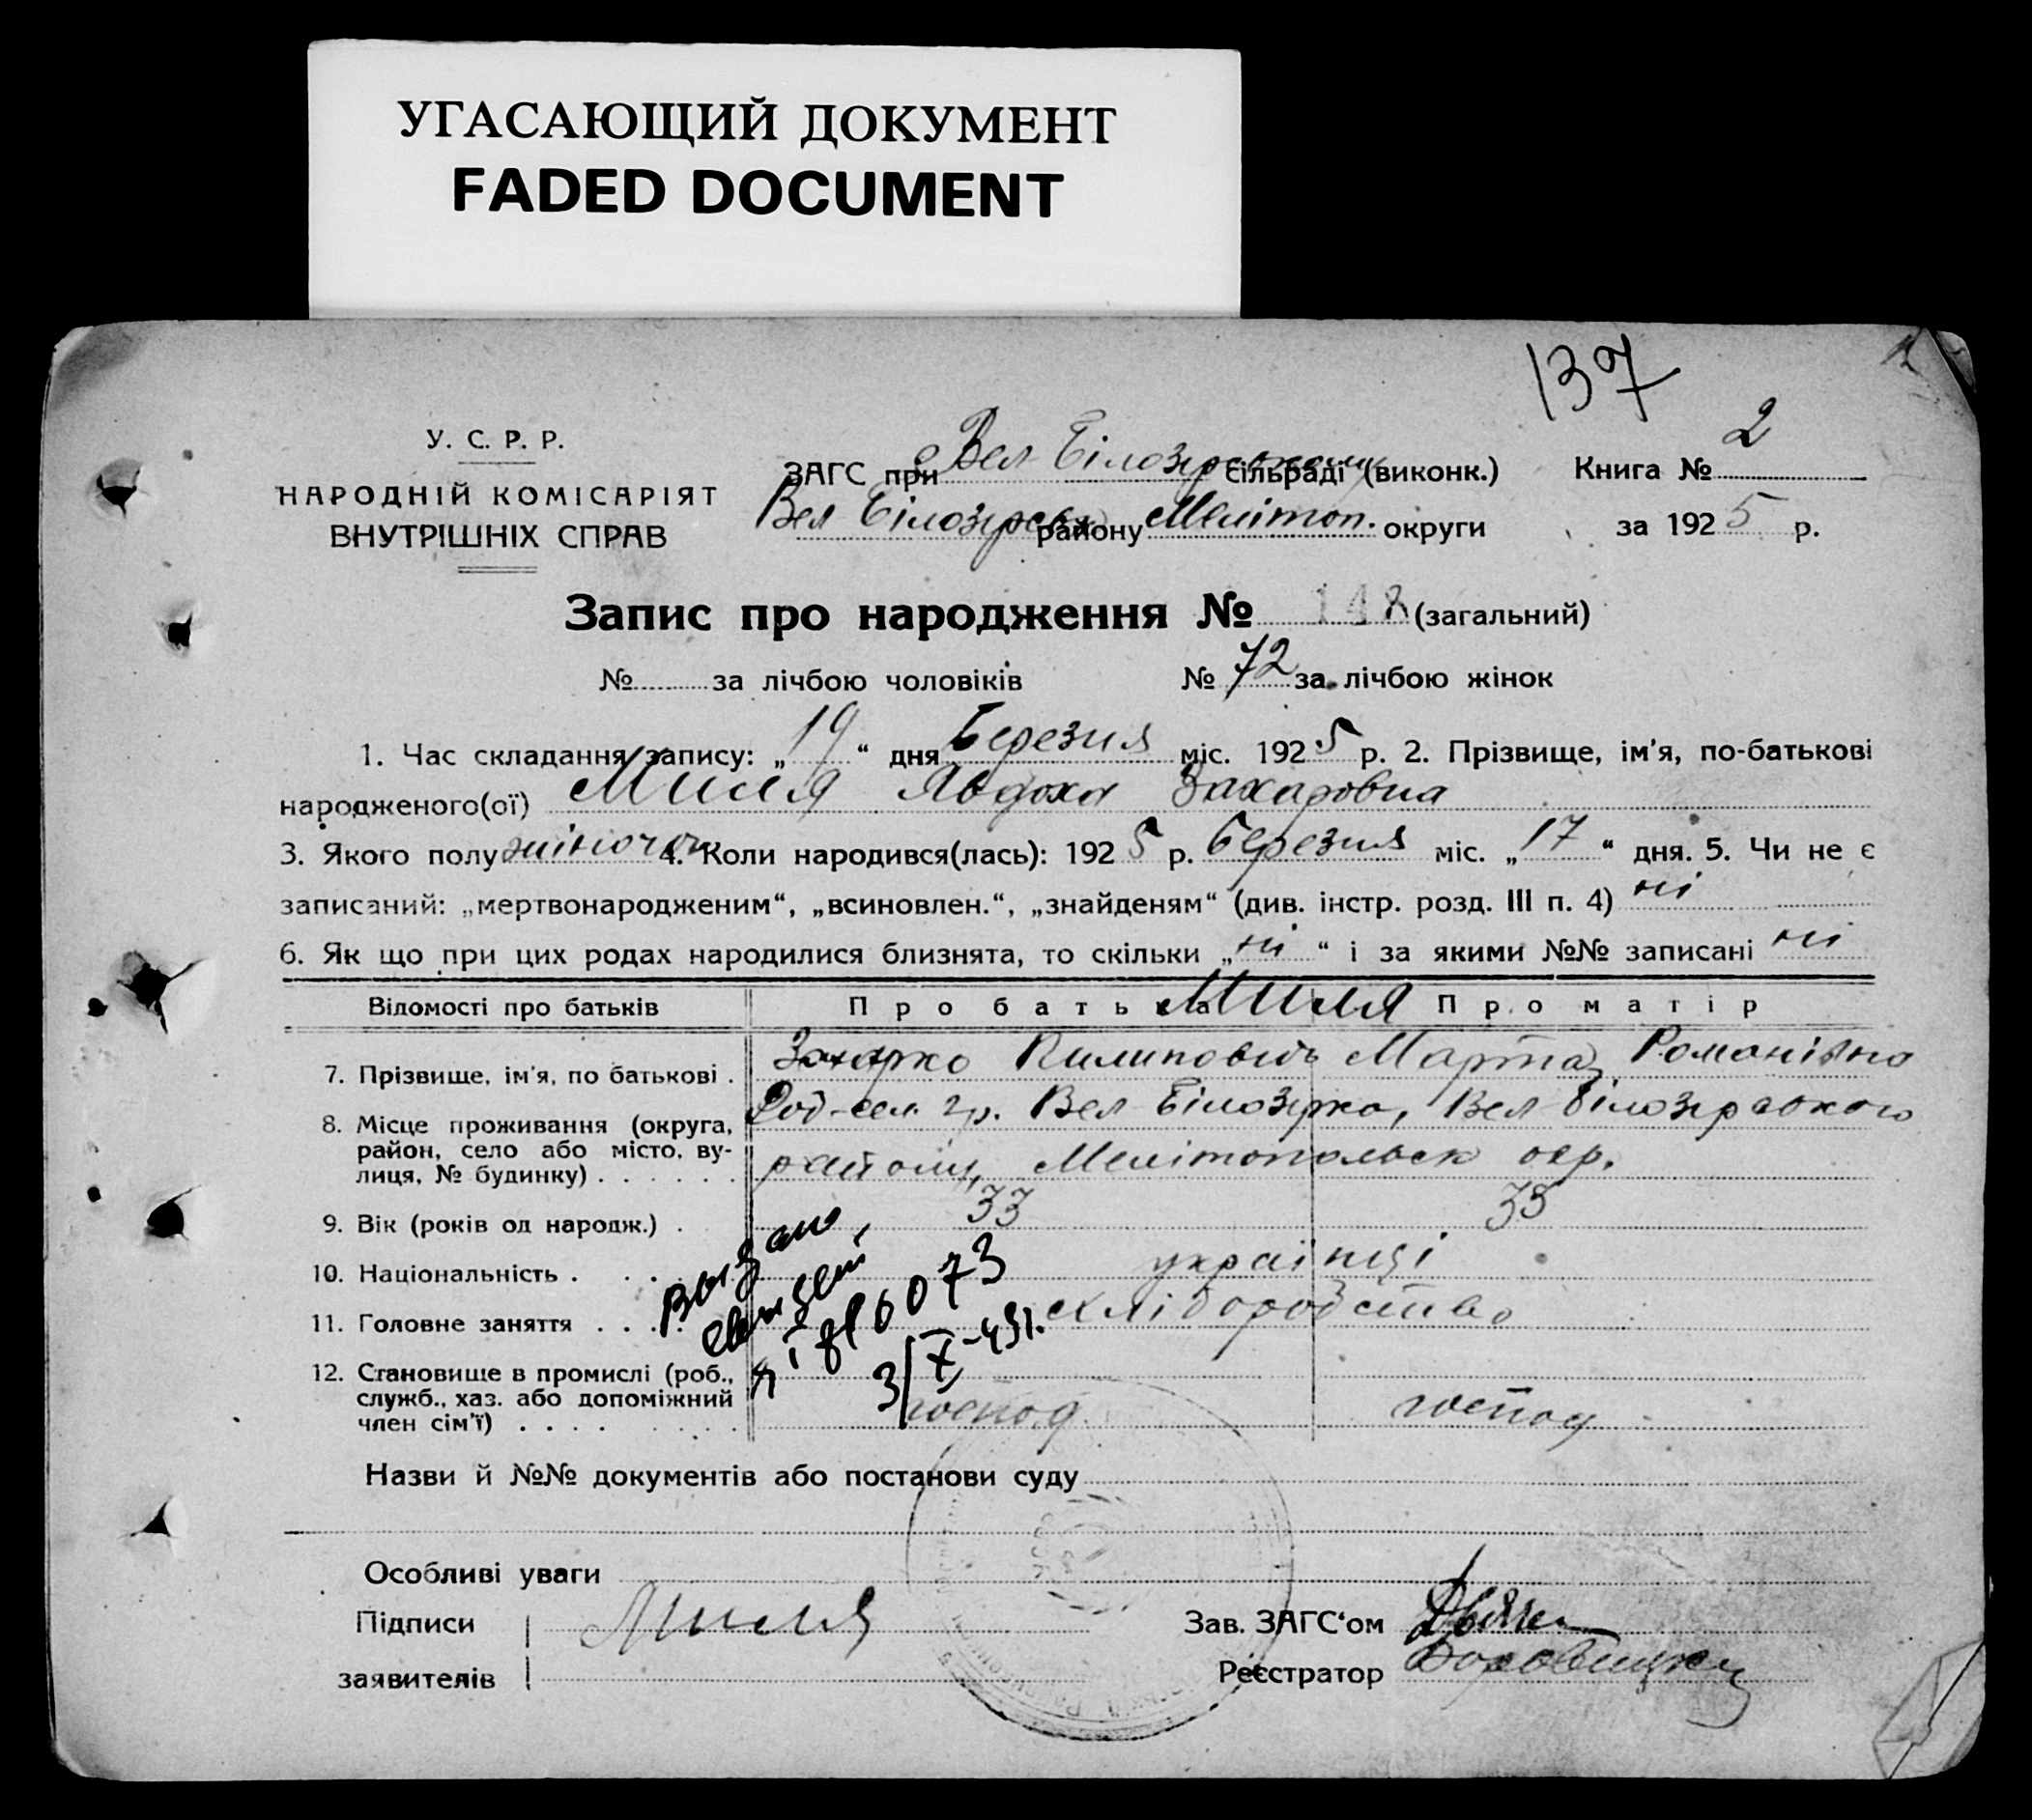 УГАСАЮЩИЙ ДОКУМЕНТ
FADED DOCUMENT
137
У. С. Р. Р.
НАРОДНІЙ КОМІСАРІЯТ
ВНУТРІШНІХ СПРАВ
ЗАГС при Вел Білозірському сільраді (виконк.) Книга № 2
Вел Білозірськ району Мелітоп. округи за 1925 р.
Запис про народження № 148 (загальний)
№ за лічбою чоловіків № 72 за лічбою жінок
1. Час складання запису: „19“ дня Березня міс. 1925 р. 2. Прізвище, ім'я, по-батькові
народженого(ої) Миля Явдоха Захаровна
3. Якого полу жіночої 4. Коли народився(лась): 1925 р. Березня міс. „17“ дня. 5. Чи не є
записаний: „мертвонародженим“, „всиновлен.“, „знайденям“ (див. інстр. розд. III п. 4) ні
6. Як що при цих родах народилися близнята, то скільки „ні“ і за якими №№ записані ні
Відомості про батьків Про батька Миля Про матір
7. Прізвище, ім'я, по батькові . Захарко Пилипович Марта Романівна
8. Місце проживання (округа, район, село або місто, вулиця, № будинку) . . . . . . гр. Вел Білозірка, Вел Білозірського
району, Мелітопольск окр.
9. Вік (років од народж.) . 33 35
10. Національність . . . . українці
11. Головне заняття . . . . хліборобство
12. Становище в промислі (роб., служб., хаз. або допоміжний член сім'ї) . . . . господ господ
Выдано
3/X-43г.
Назви й №№ документів або постанови суду
Особливі уваги
Підписи Миля Зав. ЗАГС'ом
заявителів Реєстратор